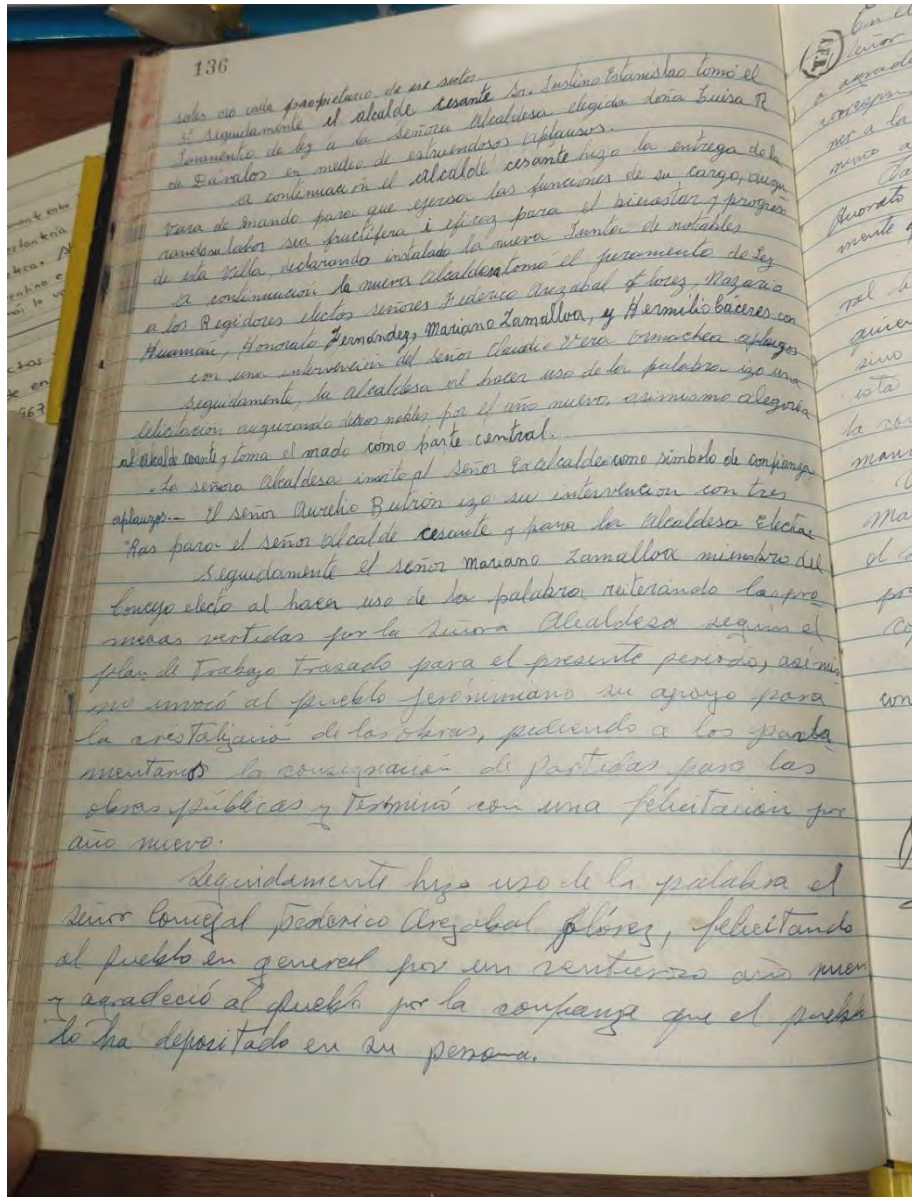 136
soles oro cada propietario de ese sector.
3º Seguidamente el alcalde cesante Sr. Justino Estanislao tomó el
Juramento de ley a la Señora Alcaldesa elegida doña Luisa R
de Davalos en medio de estruendosos aplausos.
a continuación el alcalde cesante hizo la entrega de la
Vara de mando para que ejersa las funciones de su cargo, augu
randose labor sea fructífera i eficaz para el bienestar y progreso
de esta Villa, declarando instalado la nueva Junta de notables.
a continuación la nueva alcaldesa tomó el juramento de Ley
a los Regidores electos señores Federico Arezabal florez, Nazario
Huaman, Honorato Fernández, Mariano Zamalloa, y Hermilio Cáceres con
con una intervención del señor Claudio Vera aplauzos
Seguidamente, la alcaldesa al hacer uso de la palabra izo una
felicitación augurando deseos nobles por el año nuevo, asimismo alegoría
al alcalde cesante, y toma el mado como parte central.
La señora Alcaldesa invito al señor Exalcalde como simbolo de confianza
aplauzos.- El señor Aurelio Butrón izo su intervencion con tres
Ras para el señor alcalde cesante y para la Alcaldesa Electa
Seguidamente el señor Mariano Zamalloa miembro del
Concejo electo al hacer uso de la palabra reiterando las pro
mesas vertidas por la Señora Alcaldesa segun el
plan de Trabajo Trasado para el presente periodo, asimis
mo invocó al pueblo jeronimiano su apoyo para
la cristalización de las obras, pidiendo a los parla
mentarios la consignación de Partidas para las
obras públicas y Terminó con una felicitación por
año nuevo.
Seguidamente hizo uso de la palabra el
señor Concejal Federico Arezabal flórez, felicitando
al pueblo en general por un venturoso año nuevo
y agradeció al pueblo por la confianza que el pueblo
lo ha depositado en su persona.